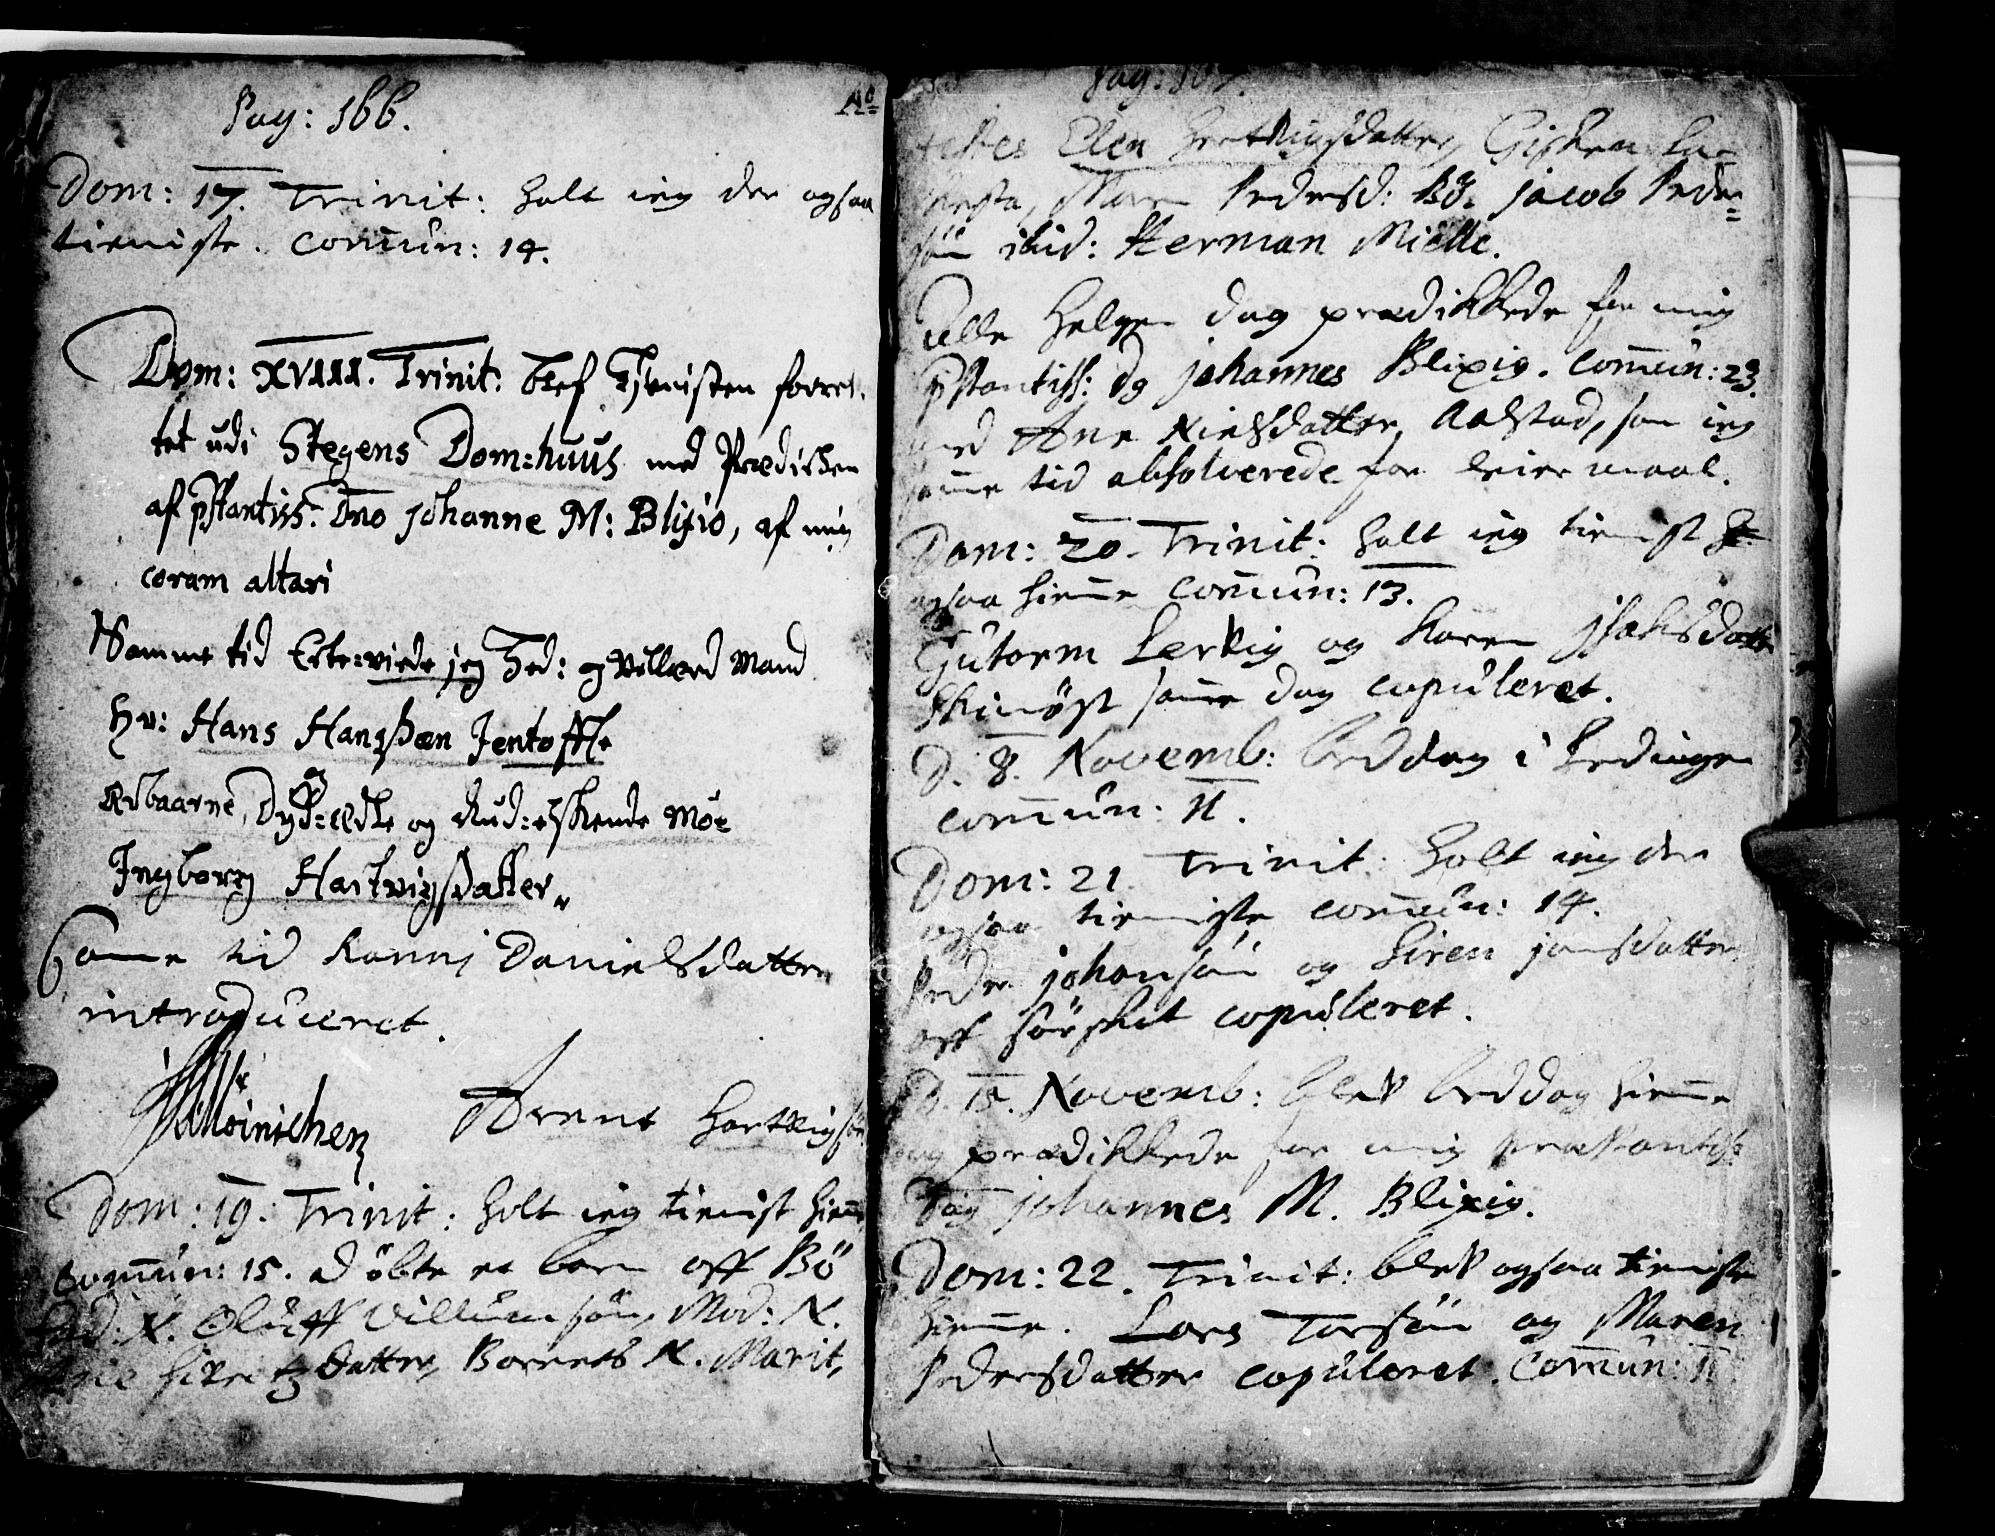 Pag: 166.
Ao
Dom: 17. Trinit: holt ieg der ogsaa
tieniste. Commun: 14.
Dom: XVIII. Trinit: blef Tjenisten forret-
tet udi Stegens Dom:huus med Prædicken
af pstantiss. Dno Johanne M: Blixio, af mig
coram altari
Samme tid Ecte:viede jeg Hed: og Vellærd Mand
Hr: Hans Hanszøn Jentofft
og
Ærbaarne, Dyd:ædle og Gud:elskende Møe
Ingborg Hartvigsdatter
Samme tid Karen Danielsdatter
introduceret.
Arent Hartvigsen
Dom: 19. Trinit: holt ieg tienist hieme
Commun: 15. døbte et barn off Bö
Fad: N. Oluff Villumsön, Mod: N.
Sivertzdatter, Barnets N. Marit,
Pag: 167.
testes Elen Hartvigsdatter, Gisken
Maren Pedersd: Bö. Jacob Peder=
sön ibid: Herman Mielle.
Alle Helgen dag prædikkede for mig
pstantiss: Dn Johannes Blixig. Commun: 23.
med Ane Nielsdatter Aalstad, som ieg
samme tid absolverede for leiermaal.
Dom: 20. Trinit: holt ieg tienist
ogsaa hieme Commun: 13.
Gutorm Lervig og Karen Isaksdatter
Skinöst samme dag copuleret.
D. 8. Novemb: beddag i Ledingen
Commun: 11.
Dom: 21. Trinit: holt ieg der
ogsaa tieniste Commun: 14.
Peder Johansön og Siren Jonsdatter
off Sörskot copuleret.
D. 15. Novemb: blev beddag hieme
og prædikkede for mig præstantiss:
Johannes M. Blixig.
Dom: 22. Trinit: blev ogsaa tieniste
hieme. Lars Torsön og Maren
Pedersdatter copuleret. Commun: 11